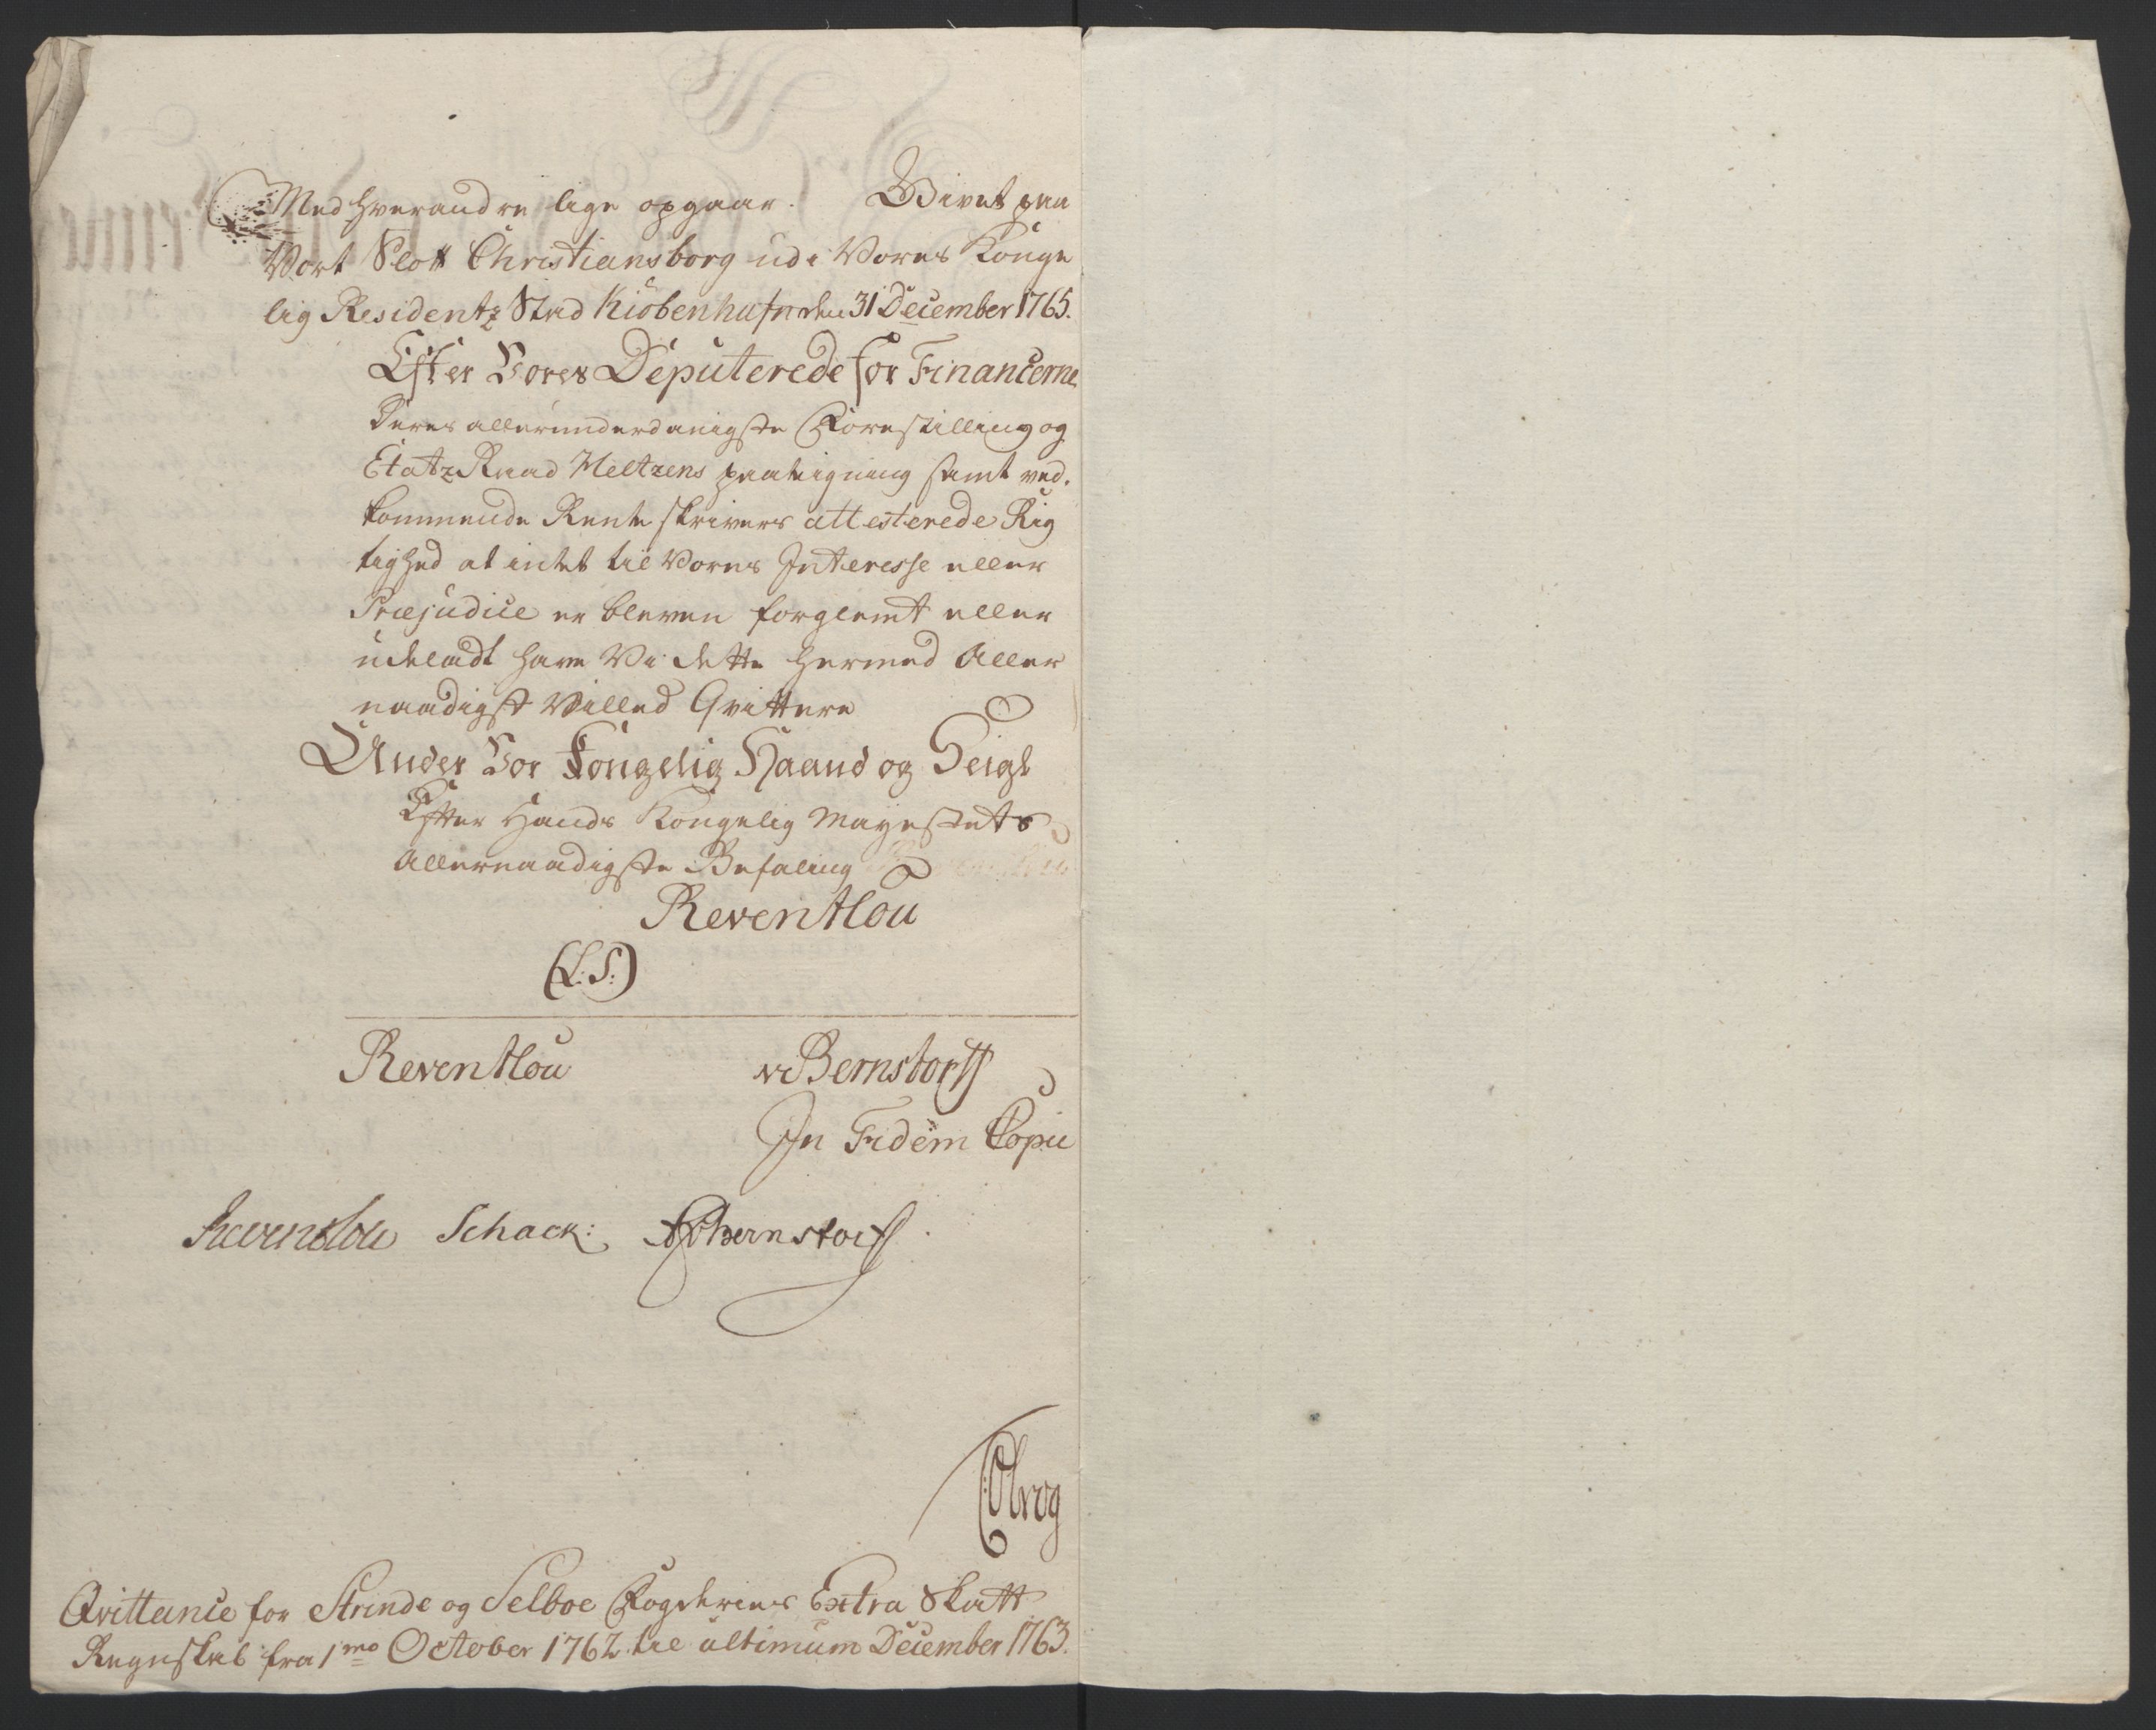 Med hverandre lige opgaar. Givet paa
Vort Slott Christiansborg udi Vores Konge
lig Residentz Stad Kiöbenhafn den 31 December 1765.
Efter Vores Deputerede for Financerne
Deres allerunderdanigste Forestilling og
Etatz Raad Meltzens paateigning samt ved.
kommende Rente skrivers attesterede Rig
tighed at intet til Vores Interesse eller
Præjudice er bleven forglemt eller
udeladt have Vi dette hermed Aller
naadigst Villed Qvittere
Under Vor Kongelig Haand og Seigl
Efter Hands Kongelig Mayestets
Allernaadigste Befaling
Reventlou
(L.S.)
Reventlou vBernstorff
In Fidem Copiæ
Reventlou Schack: Bernstorff
Qvittance for Strinde og Selboe Fogderies Extra Skatt
Regnskab fra 1mo October 1762 til ultimum December 1763.